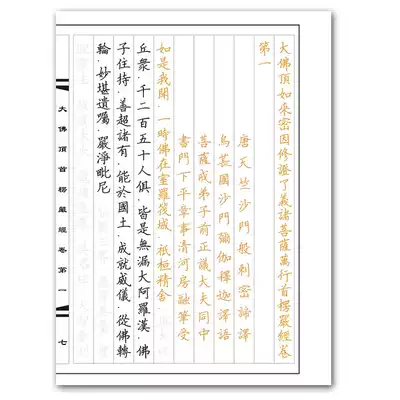 大佛頂如來密因修證了義諸菩薩萬行首楞嚴經卷
第一
唐天竺沙門般刺密諦譯
烏萇國沙門彌伽釋迦譯語
菩薩戒弟子前正議大夫同中
書門下平章事清河房融筆受
如是我聞．一時佛在室羅筏城．祇桓精舍．
丘衆．千二百五十人俱．皆是無漏大阿羅漢．佛
子住持．善超諸有．能於國土．成就威儀．從佛轉
輪．妙堪遺囑．嚴淨毗尼
大佛頂首楞嚴經卷第一
七